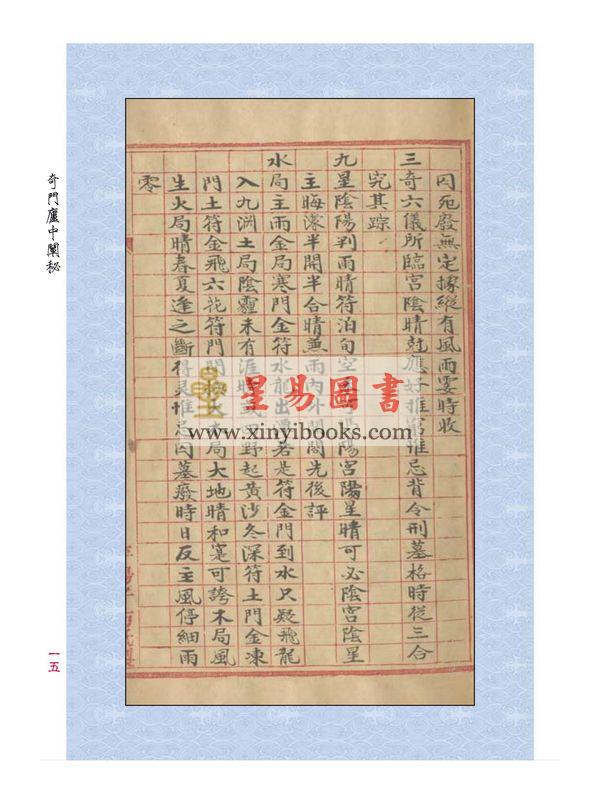 囚死廢無定據縱有風雨霎時收
三奇六儀所臨宮陰晴尅應好推窮惟忌背令刑墓格時從三合
究其踪
九星陰陽判雨晴符泊旬空 陽宮陽星晴可必陰宮陰星
主晦濛半開半合晴兼雨內外開闔先後評
水局主雨金局寒門金符水龍出 若是符金門到水只疑飛龍
入九淵土局陰霾未有涯 野起黃沙冬深符土門金凍
門土符金飛六花符門 火 局大地晴和寔可誇木局風
生火局晴春夏逢之斷得靈惟忌囚墓廢時日反主風停細雨
零
奇門廬中闡秘
一五
星易圖書
www.xinyibooks.com